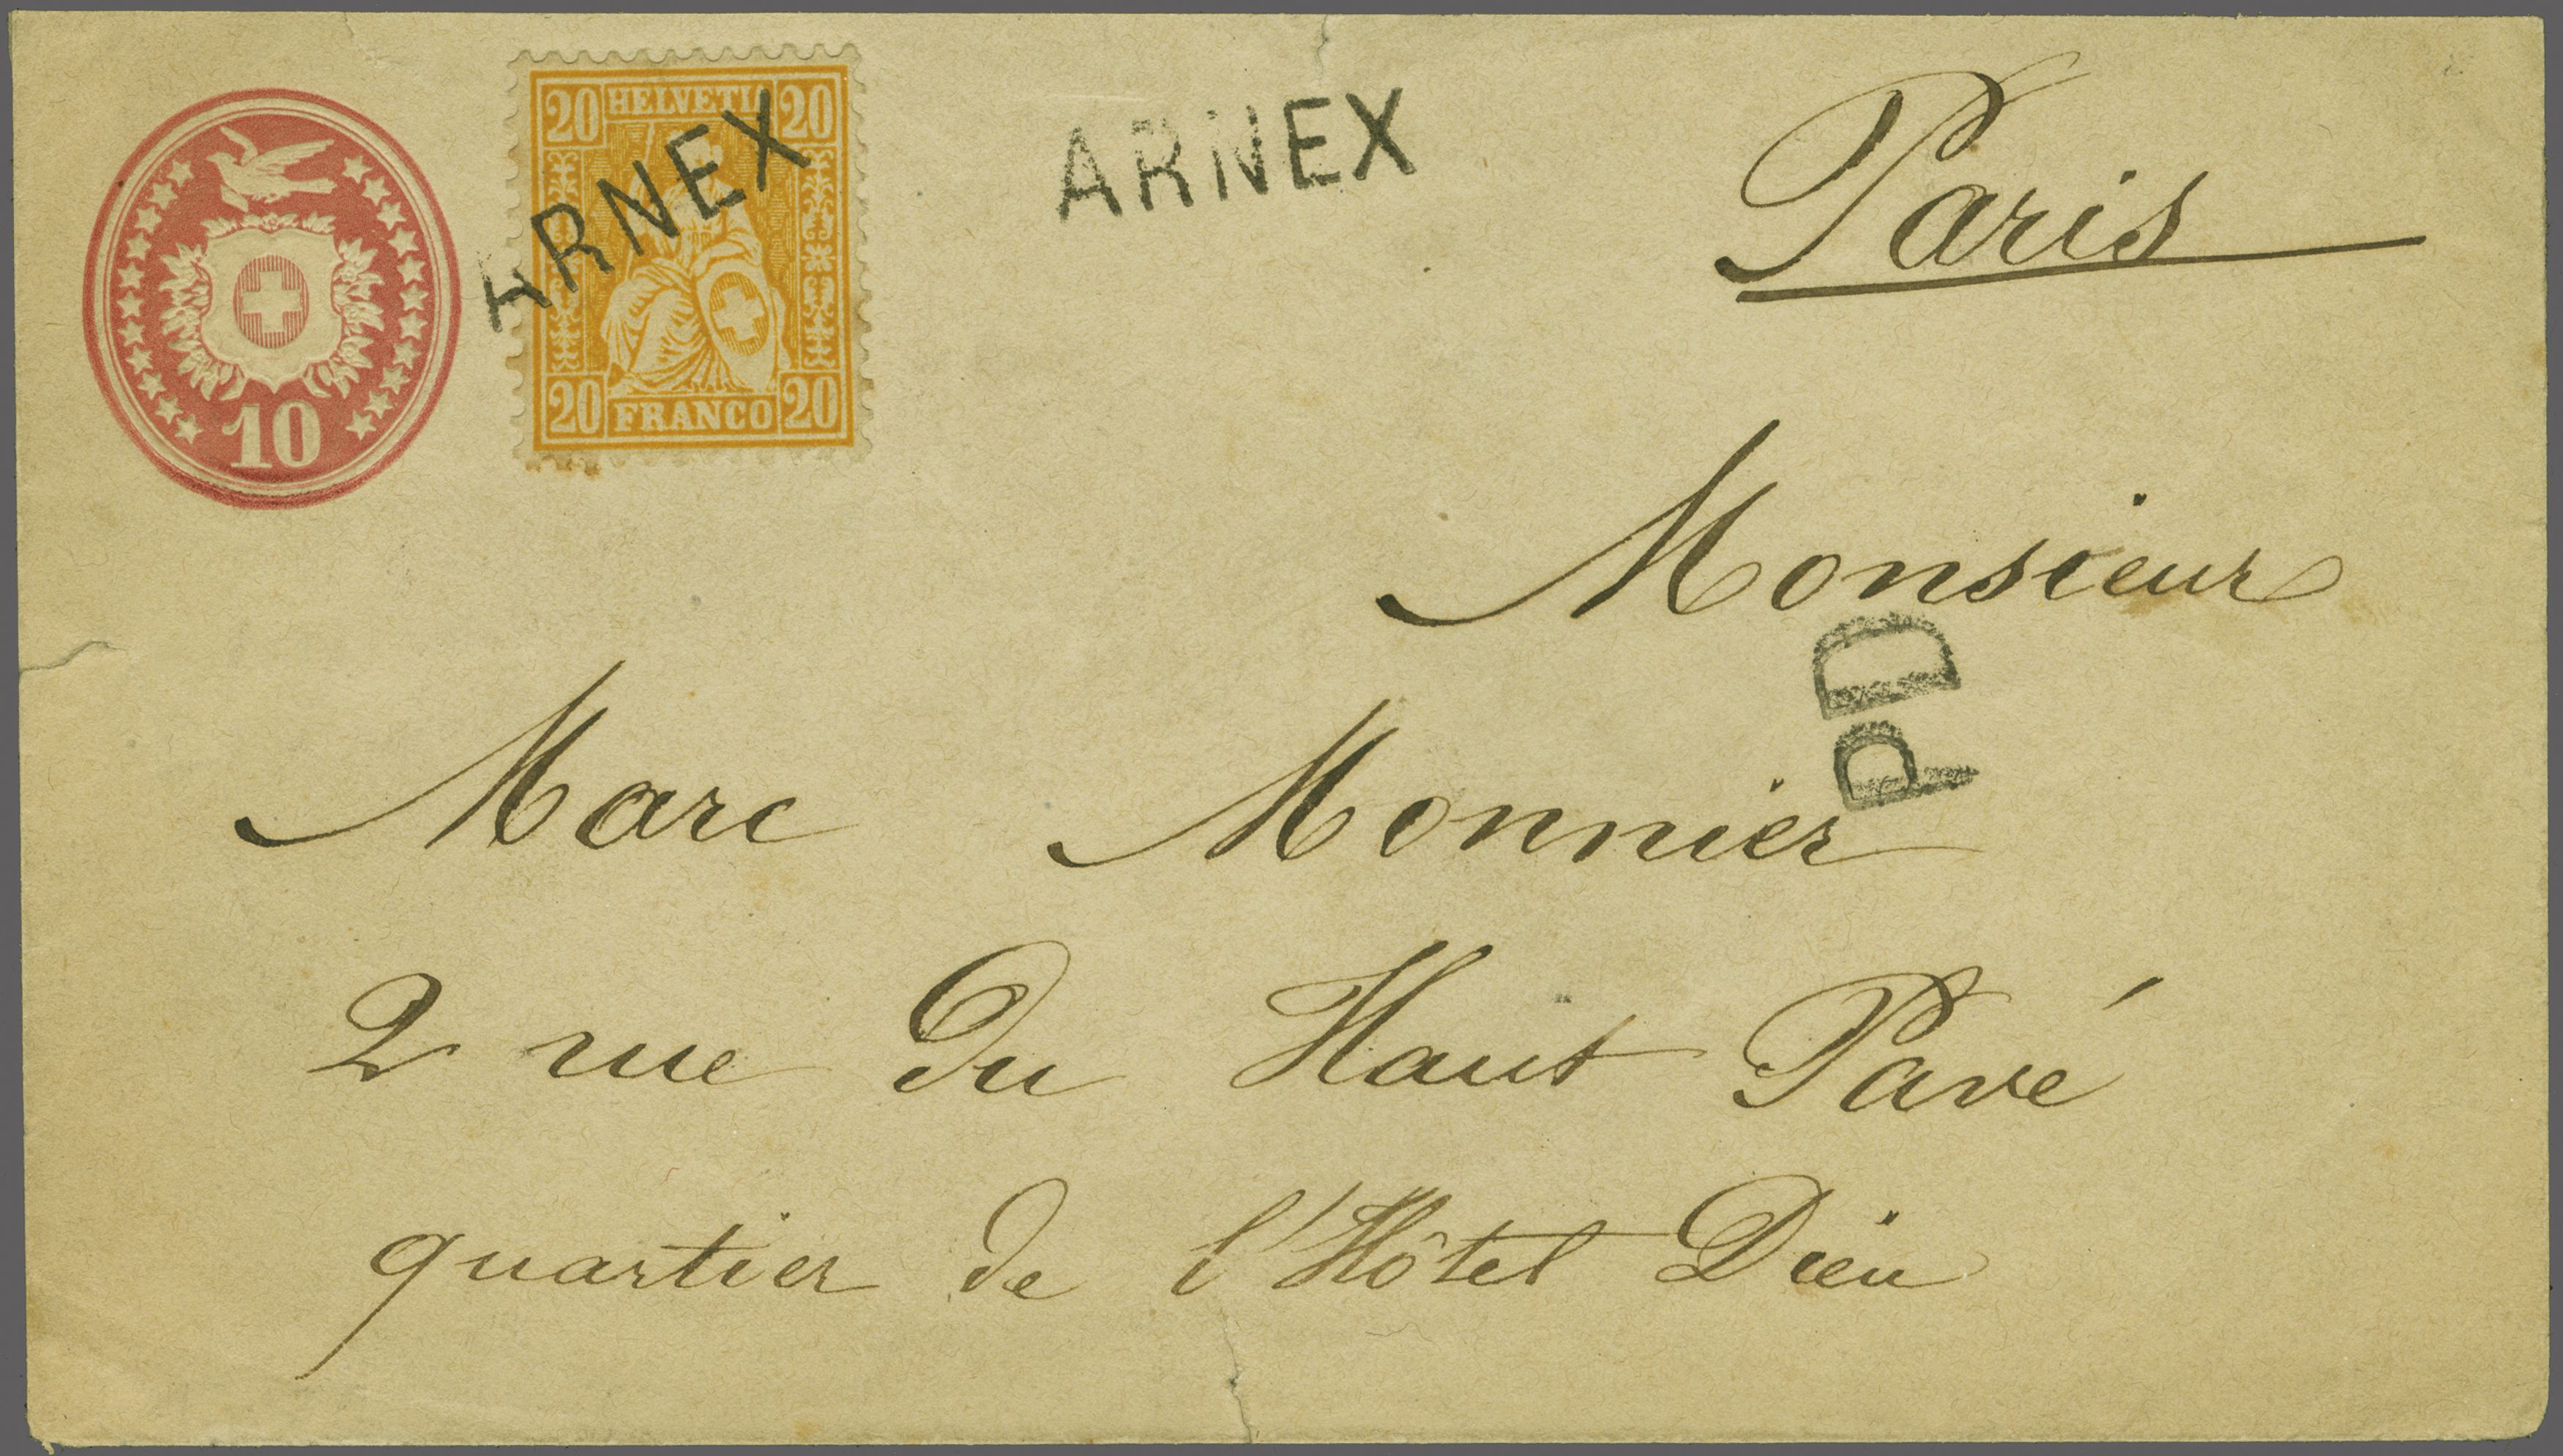 20 HELVETI 20
ARNEX
20 FRANCO 20
10
ARNEX
Paris
Monsieur
PD
Marc Monnier
2 rue du Haut Pavé
quartier de l'Hôtel Dieu